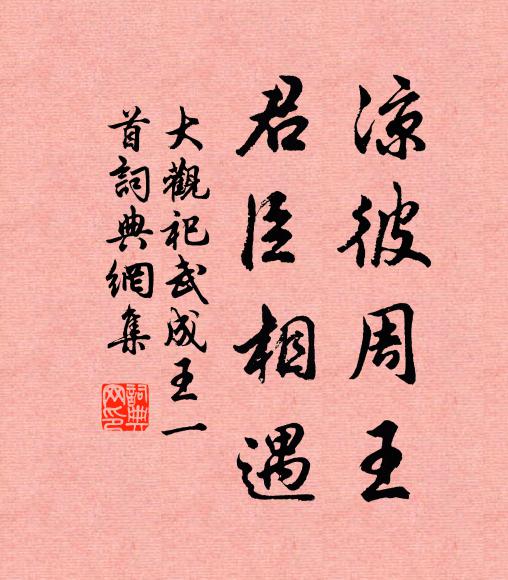 凉彼周王
君臣相遇
大觀祀武成王一
首詞典網集
詞典
网印